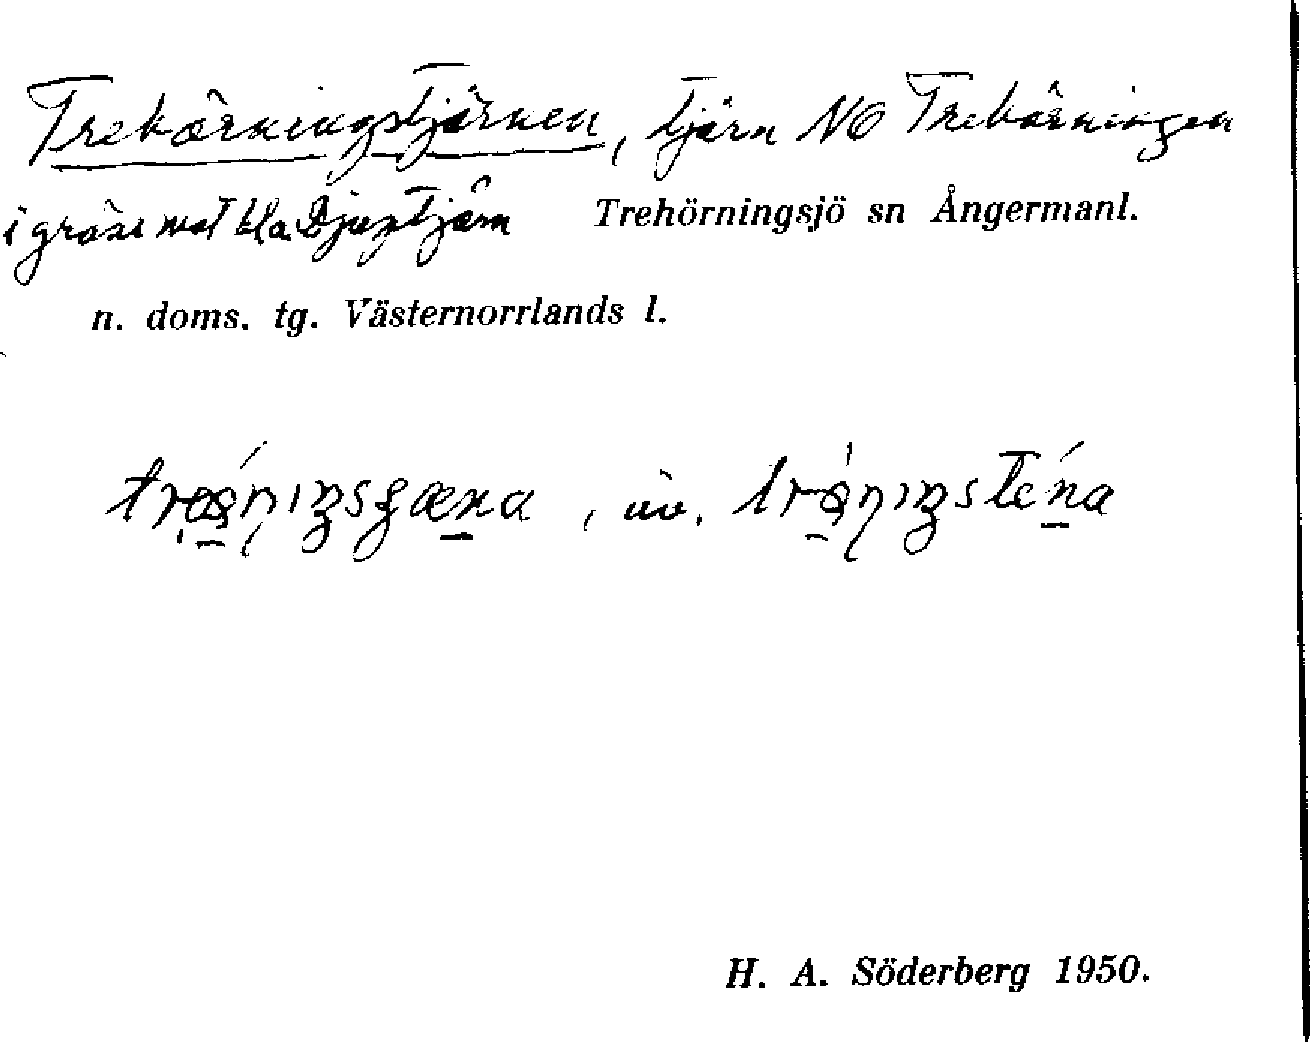 Trehörningstjärnen, tjärn NO Trehörningen
i gräns mot bl.a. Djuptjärn Trehörningsjö sn Ångermanl.
n. doms. tg. Västernorrlands l.
, äv.
H. A. Söderberg 1950.